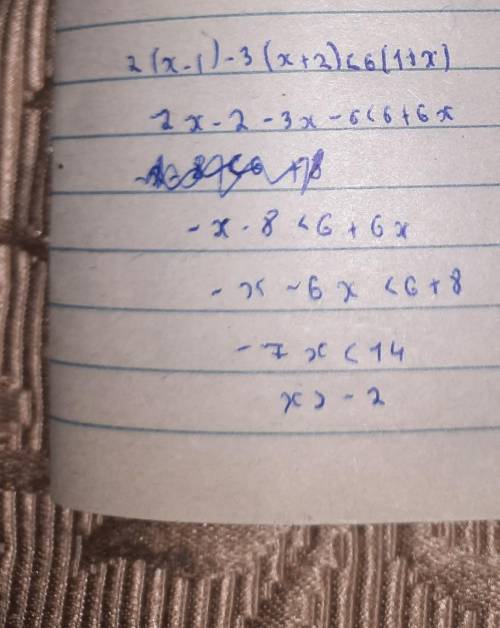 2(x-1)-3(x+2)<6(1+x)
2x-2-3x-6<6+6x
-x-8<6+6x
-x-6x<6+8
-7x<14
x>-2